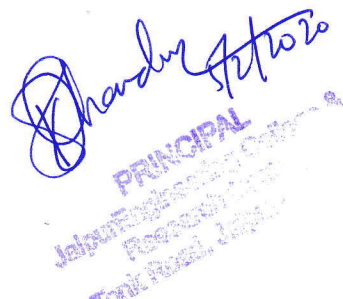 5/2/2020
PRINCIPAL
Jaipur Engineering College &
Research
Tonk Road, Jaipur